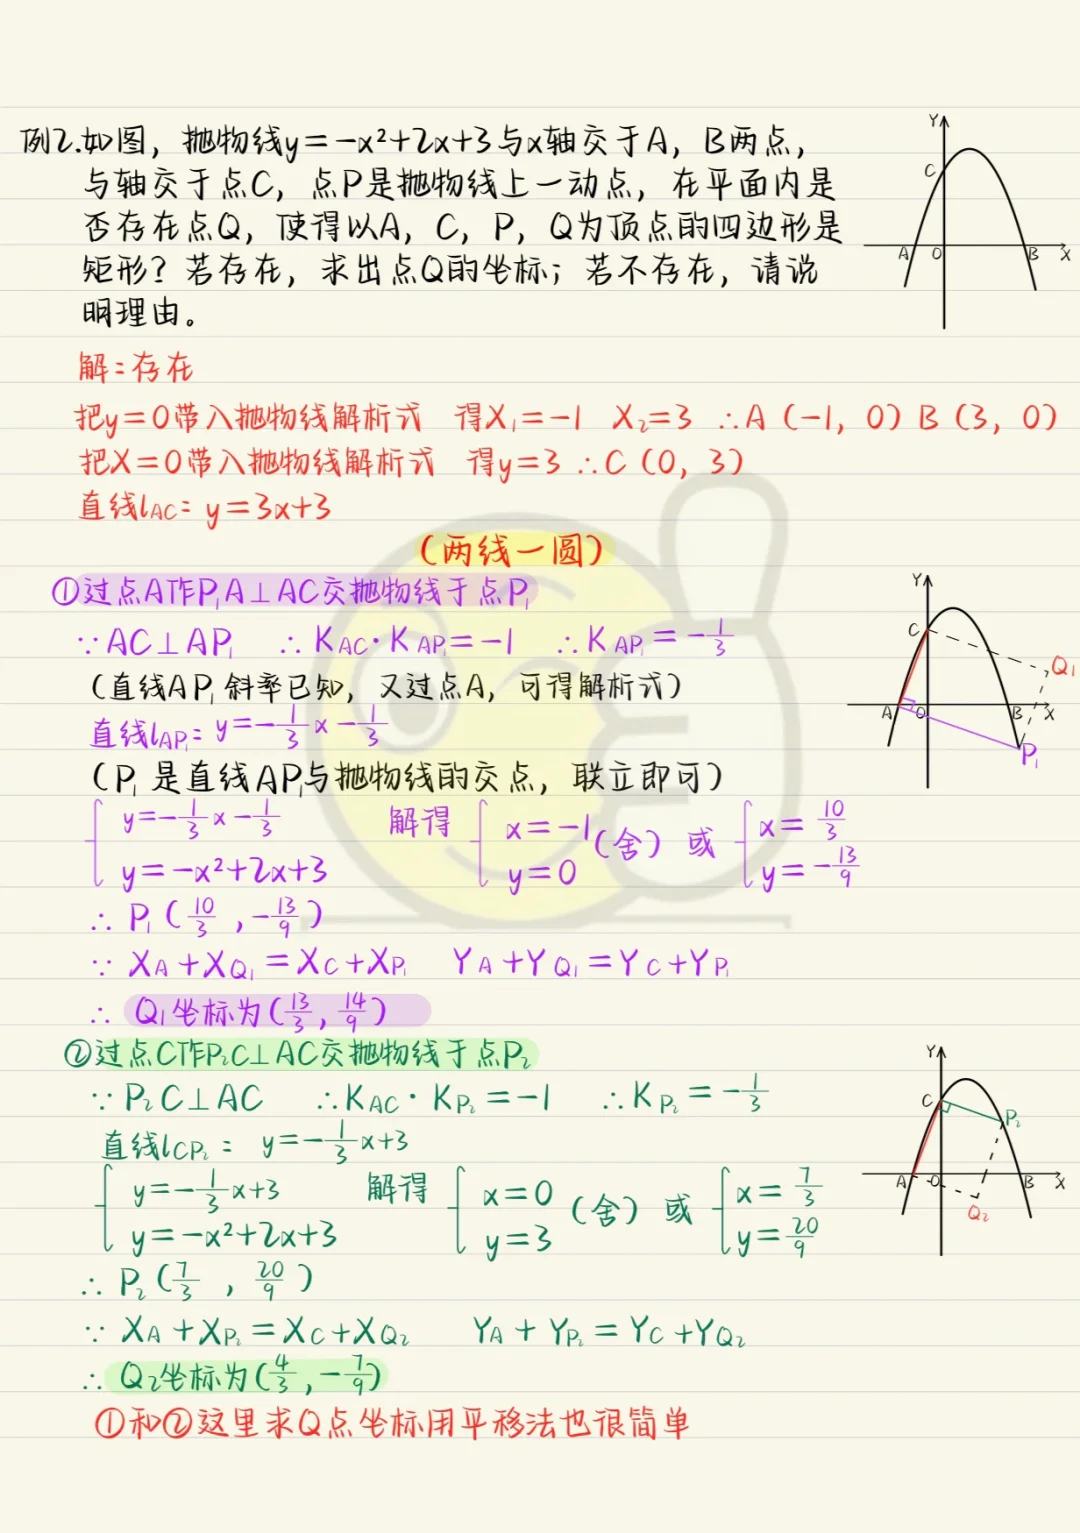 例2.如图，抛物线y=-x²+2x+3与x轴交于A，B两点，
与轴交于点C，点P是抛物线上一动点，在平面内是
否存在点Q，使得以A，C，P，Q为顶点的四边形是
矩形？若存在，求出点Q的坐标；若不存在，请说
明理由。
Y
C
A O B X
解：存在
把y=0带入抛物线解析式 得X₁=-1 X₂=3 ∴A（-1，0）B（3，0）
把X=0带入抛物线解析式 得y=3 ∴C（0，3）
直线lAC：y=3x+3
（两线一圆）
①过点A作P₁A⊥AC交抛物线于点P₁
∵AC⊥AP₁ ∴KAC·KAP₁=-1 ∴KAP₁=-1/3
（直线AP₁斜率已知，又过点A，可得解析式）
直线lAP₁：y=-1/3x-1/3
（P₁是直线AP₁与抛物线的交点，联立即可）
{ y=-1/3x-1/3 解得 { x=-1 （舍）或 { x=10/3
y=-x²+2x+3 y=0 y=-13/9
∴P₁（10/3，-13/9）
∵XA+XQ₁=XC+XP₁ YA+YQ₁=YC+YP₁
∴Q₁坐标为（13/3，14/9）
Y
C
Q₁
A O B X
P₁
②过点C作P₂C⊥AC交抛物线于点P₂
∵P₂C⊥AC ∴KAC·KP₂=-1 ∴KP₂=-1/3
直线lCP₂：y=-1/3x+3
{ y=-1/3x+3 解得 { x=0 （舍）或 { x=7/3
y=-x²+2x+3 y=3 y=20/9
∴P₂（7/3，20/9）
∵XA+XP₂=XC+XQ₂ YA+YP₂=YC+YQ₂
∴Q₂坐标为（4/3，-7/9）
①和②这里求Q点坐标用平移法也很简单
Y
C
P₂
A O B X
Q₂